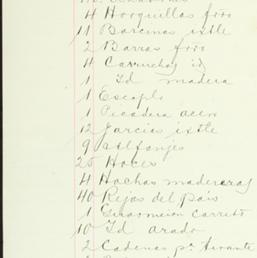 4 Horquillas foro
11 Barcinas ixtle
2 Barras foro
4 Carruchas id
1 Id madera
1 Escoplo
1 Picadera acero
12 Jarcias ixtle
9 Alfanjes
25 Hoces
4 Hachas madereras
40 Rejas del pais
1 Guarnicion Carreto
10 Id arado
2 Cadenas pa. tirante